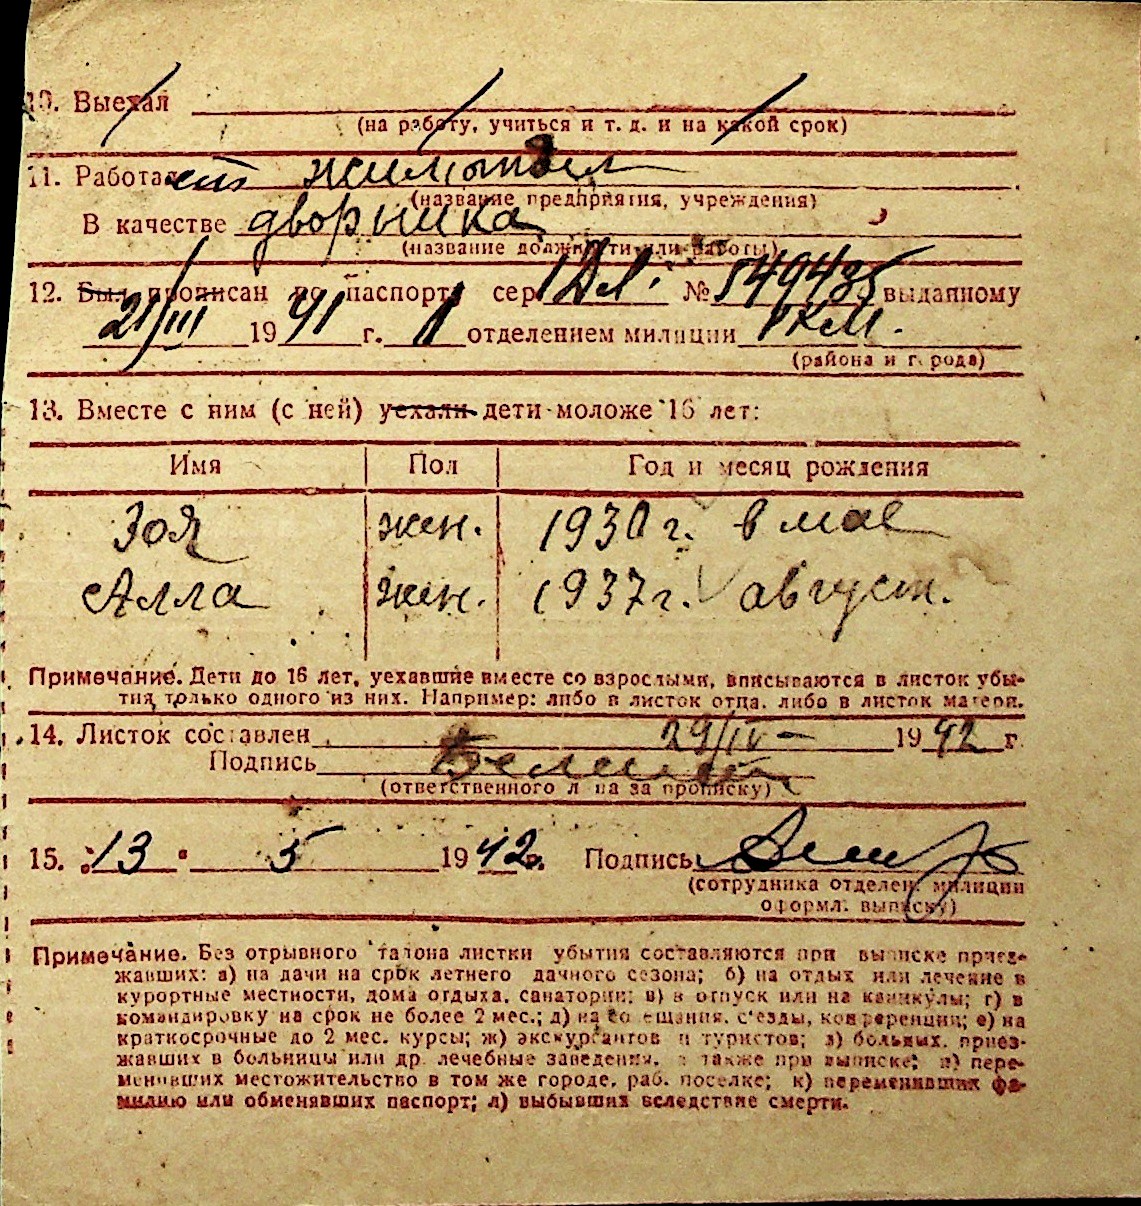 10. Выехал
(на работу, учиться и т. д. и на какой срок)
11. Работает жилотдел
(название предприятия, учреждения)
В качестве дворника
(название должности или работы)
12. Был прописан по паспорту сер. № 549485 выданному
21/III 1941 г. 1 отделением милиции РКМ.
(района и города)
13. Вместе с ним (с ней) уехали дети моложе 16 лет:
Имя Пол Год и месяц рождения
Зоя жен. 1930 г. в мае
Алла жен. 1937 г. август.
Примечание. Дети до 16 лет, уехавшие вместе со взрослыми, вписываются в листок убы-
тия только одного из них. Например: либо в листок отца, либо в листок матери.
14. Листок составлен 29/IV- 1942 г.
Подпись
(ответственного лица за прописку)
15. "13" 5 1942 г. Подпись
(сотрудника отделен. милиции
оформл. выписку)
Примечание. Без отрывного талона листки убытия составляются при выписке приез-
жавших: а) на дачи на срок летнего дачного сезона; б) на отдых или лечение в
курортные местности, дома отдыха, санатории; в) в отпуск или на каникулы; г) в
командировку на срок не более 2 мес.; д) на совещания, с'езды, конференции; е) на
краткосрочные до 2 мес. курсы; ж) экскурсантов и туристов; з) больных, приез-
жавших в больницы или др. лечебные заведения, а также при выписке; и) пере-
менивших местожительство в том же городе, раб. поселке; к) переменивших фа-
милию или обменявших паспорт; л) выбывших вследствие смерти.